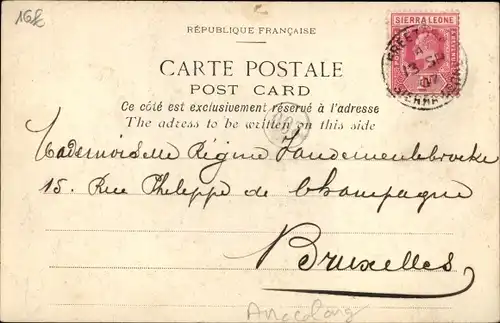 16k
RÉPUBLIQUE FRANÇAISE
SIERRA LEONE
FREETOWN
A
13 SP
07
SIERRA LEONE
CARTE POSTALE
POST CARD
Ce côté est exclusivement réservé à l'adresse
The adress to be written on this side
Mademoiselle Régine Vandemeulebroeke
15. Rue Philippe de Champagne
Bruxelles